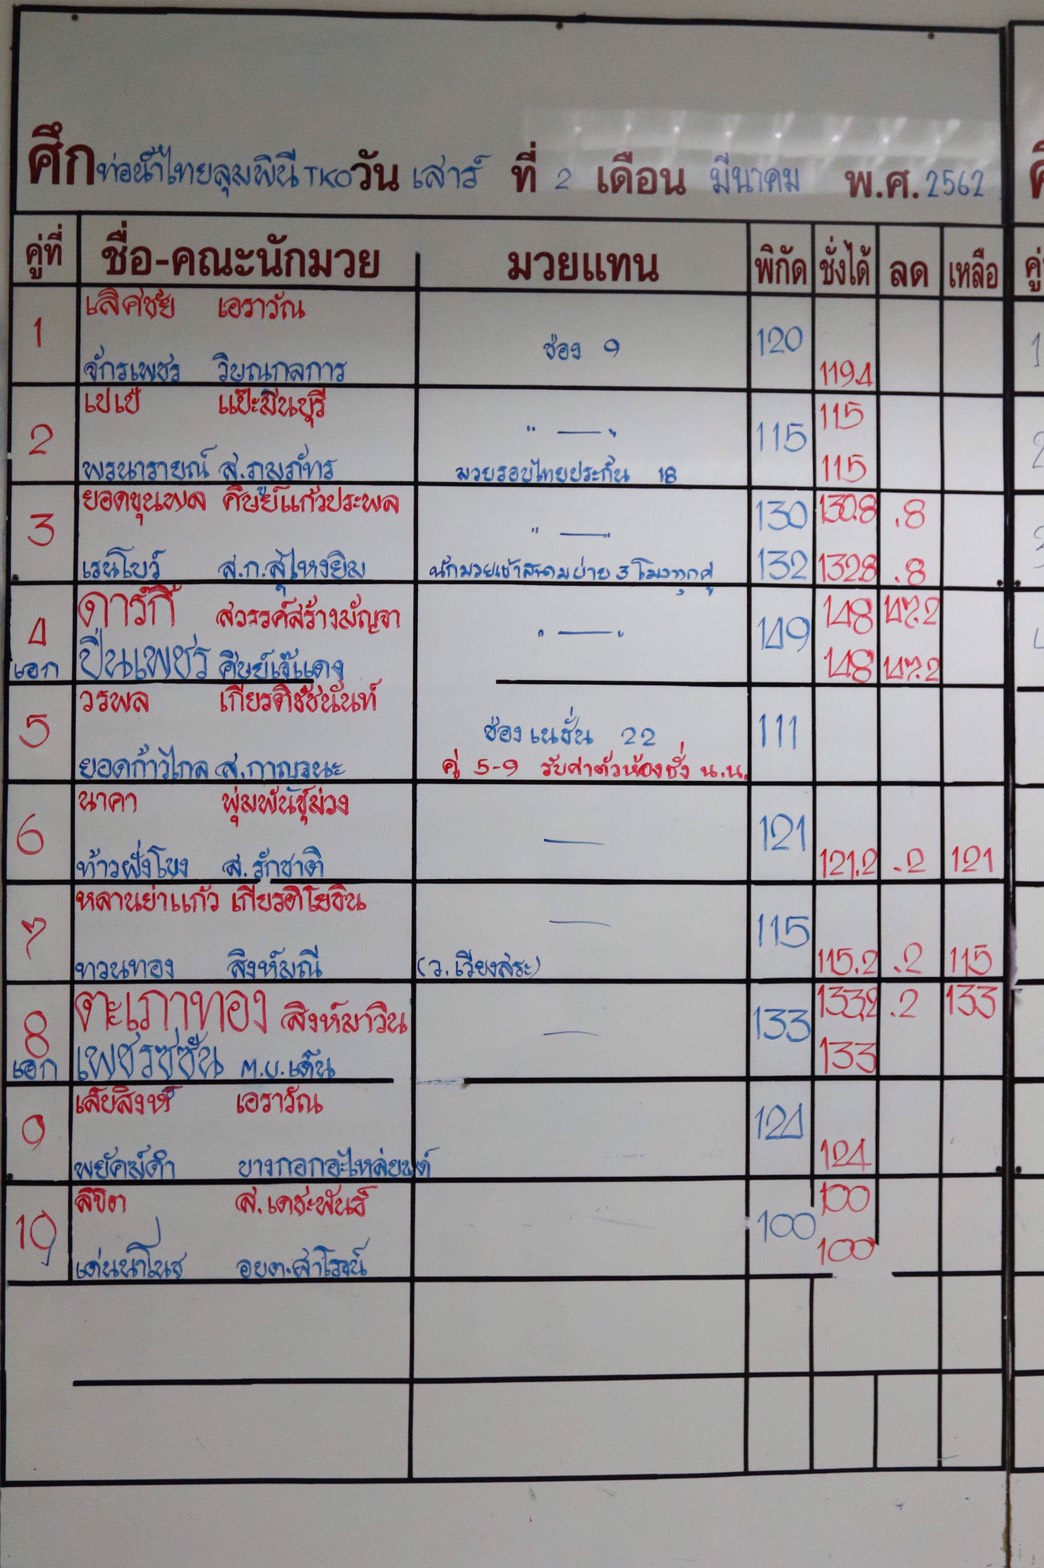 ศึกท่อน้ำไทยลุมพินี TKO วัน เสาร์ ที่ 2 เดือน มีนาคม พ.ศ. 2562
คู่ที่ ชื่อ-คณะนักมวย มวยแทน พิกัด ชั่งได้ ลด เหลือ
1 เลิศชัย เอราวัณ
ช่อง 9 120
จักรเพชร วิบูณกลการ 119.4
2 เปเป้ แป๊ะมีนบุรี 115
" — " 115
พรนารายณ์ ส.ภูมภัทร มวยรอบไทยประกัน 18 115
3 ยอดขุนพล ศิษย์แก้วประพล 130 130.8 .8
" — "
เรนโบว์ ส.ก.สุไหงยิม นักมวยเข้าสนามบ่าย 3 โมงทุกคู่ 132 132.8 .8
4 ดาร์กี้ สวรรค์สร้างมัญจา 148 147.2
" — " 149
เอก ปืนเพชร ศิษย์เจ๊แดง 148 147.2
5 วรพล เกียรติชัชนันท์
ช่อง เนชั่น 22 111
ยอดก้าวไกล ส.กาญจนะ คู่ 5-9 รับค่าตัวห้องชั่ง น.น.
6 นาคา พุ่มพันธุ์ม่วง
— 121
ท้าวฝั่งโขง ส.รักชาติ 121.2 .2 121
7 หลานย่าแก้ว
— 115
ทวนทอง สิงห์มณี (ว.เวียงสระ) 115.2 .2 115
8 ตะเภาทอง สิงห์มาวิน 133.2 .2 133
— 133
เอก เพชรซูซัน ม.บ.เด้น 133
9 เสือสิงห์ เอราวัณ
124
พยัคฆ์ดำ บางกอกอะไหล่ยนต์ 124
10 ลิขิต ส.เดชะพันธ์ 100
100
เด่นนำโนช อบต.สาโรจน์ 100